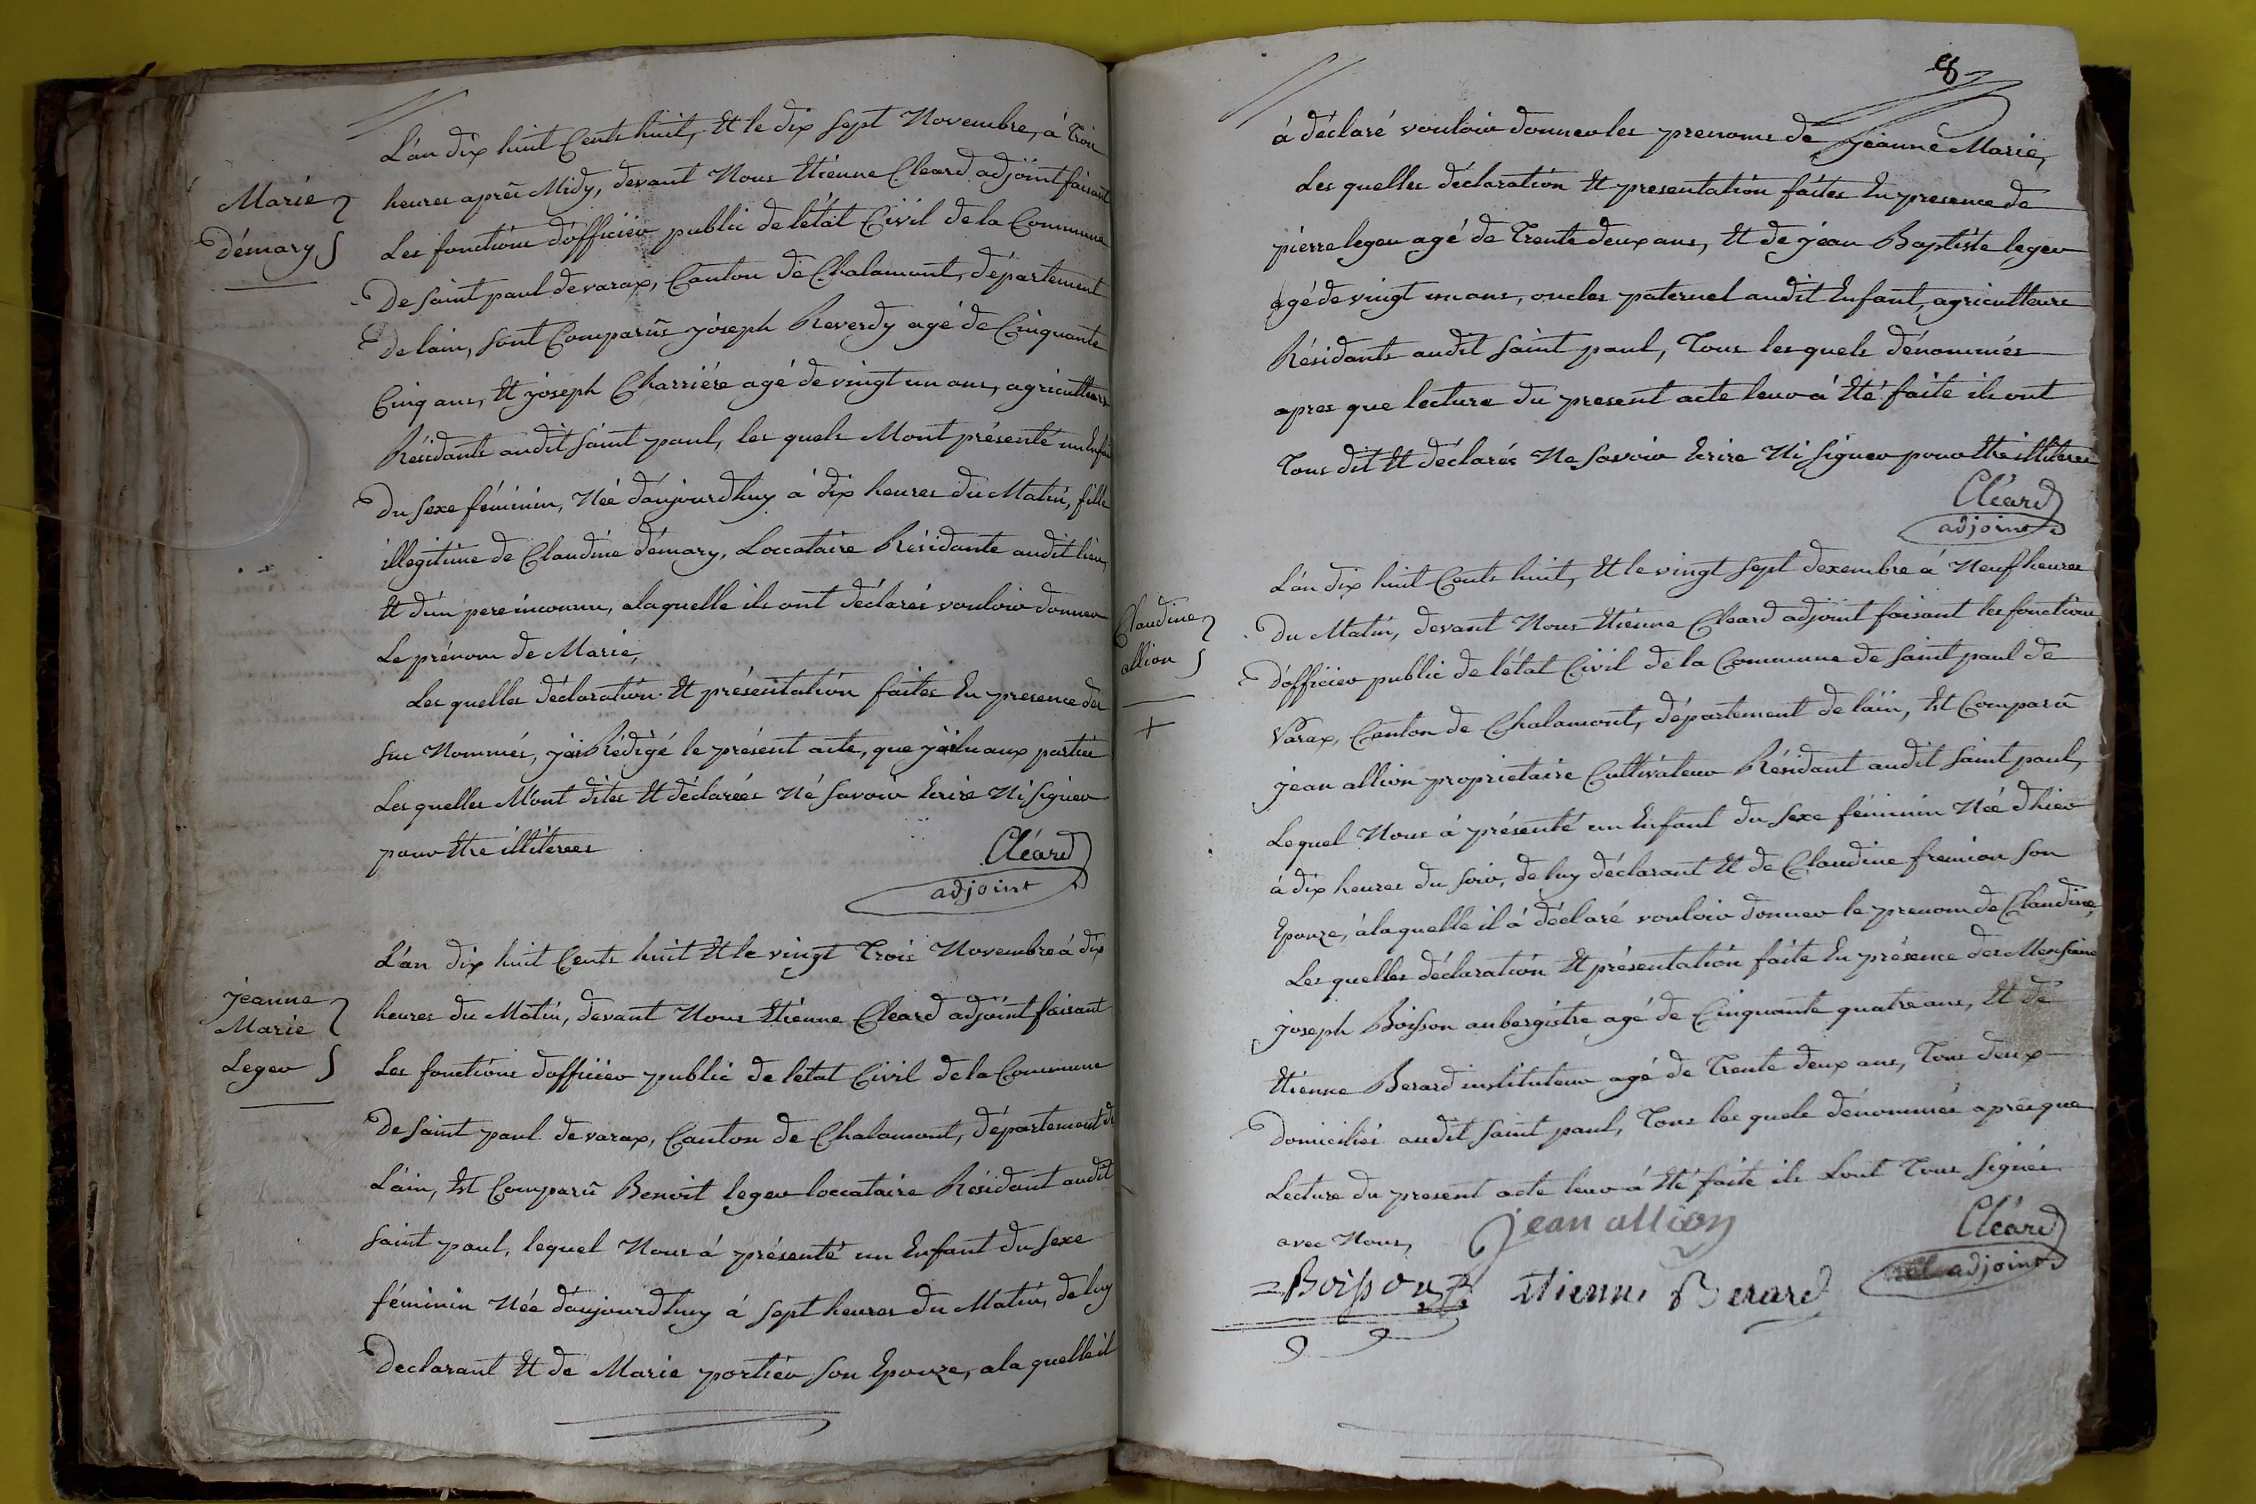 L'an dix huit Cents huit, Et le dix sept Novembre, à trois
heures après Midy, devant Nous Etienne Cleard adjoint faisant
Les fonctions d'officier public de l'état Civil de la Commune
De saint paul de varax, Canton de Chalamont, département
de lain, sont Comparûs joseph Reverdy agé de Cinquante
Cinq ans, Et joseph Charriére agé de vingt un ans, agriculteurs
Résidants audit saint paul, les quels Mont présenté un Enfant
Du sexe féminin, Née d'aujourdhuy à dix heures du Matin, fille
illegitime de Claudine démary, Loccataire Résidante audit lieu,
Et d'un pere inconnu, alaquelle ils ont déclarés vouloir donner
Le prénom de Marie,
Les quelles déclaration Et présentation faites En presence des
sus Nommés, j'ai Rédigé le présent acte, que j'ai lu aux parties
Les quelles M'ont dites Et déclarées Né savoir Ecrire Ni signer
pour Etre illiterees
Cléard
adjoint
Marie
démary
L'an dix huit Cents huit Et le vingt trois Novembre à dix
heures du Matin, devant Nous Etienne Cleard adjoint faisant
Les fonctions d'officier public de l'etat Civil de la Commune
De saint paul de varax, Canton de Chalamont, département de
L'ain, Est Comparû Benoit leger loccataire Résidant audit
saint paul, lequel Nous á présenté un Enfant du sexe
féminin Née d'aujourdhuy á sept heures du Matin, de luy
Declarant Et de Marie portier son Epouze, ala quelle il
jeanne
Marie
Leger
8
á déclaré vouloir donner les prenoms de jeanne Marie,
Les quelles déclaration Et presentation faites En presence de
pierre leger agé de trente deux ans, Et de jean Baptiste leger
agé de vingt un ans, oncles paternel audit Enfant, agriculteurs
Résidants audit saint paul, tous les quels dénommés
apres que lecture du present acte leur á Eté faite ils ont
tous dit Et déclarés Ne savoir Ecrire Ni signer pour Etre illiteres
Cléard
adjoint
L'an dix huit Cents huit, Et le vingt sept dexembre á Neuf heures
Du Matin, devant Nous Etienne Cleard adjoint faisant les fonctions
D'officier public de l'état Civil de la Commune de saint paul de
Varax, Canton de Chalamont, département de l'ain, Est Comparû
jean allion proprietaire Cultivateur Résidant audit saint paul,
Lequel Nous á présenté un Enfant du sexe féminin Née d'hier
á dix heures du soir, de luy déclarant Et de Claudine fremion son
Epouze, á laquelle il á déclaré vouloir donner le prenom de Claudine,
Les quelles déclaration Et présentation faite En présence des Messieurs
joseph Boisson aubergistre agé de Cinquante quatre ans, Et de
Etienne Berard instituteur agé de trente deux ans, tous deux
domiciliés audit saint paul, tous les quels dénommés après que
Lecture du present acte leur á Eté faite ils Lont tous signés
avec Nous,
jean allion
Cléard
adjoint
Boisson
Etienne Berard
Claudine
allion
+